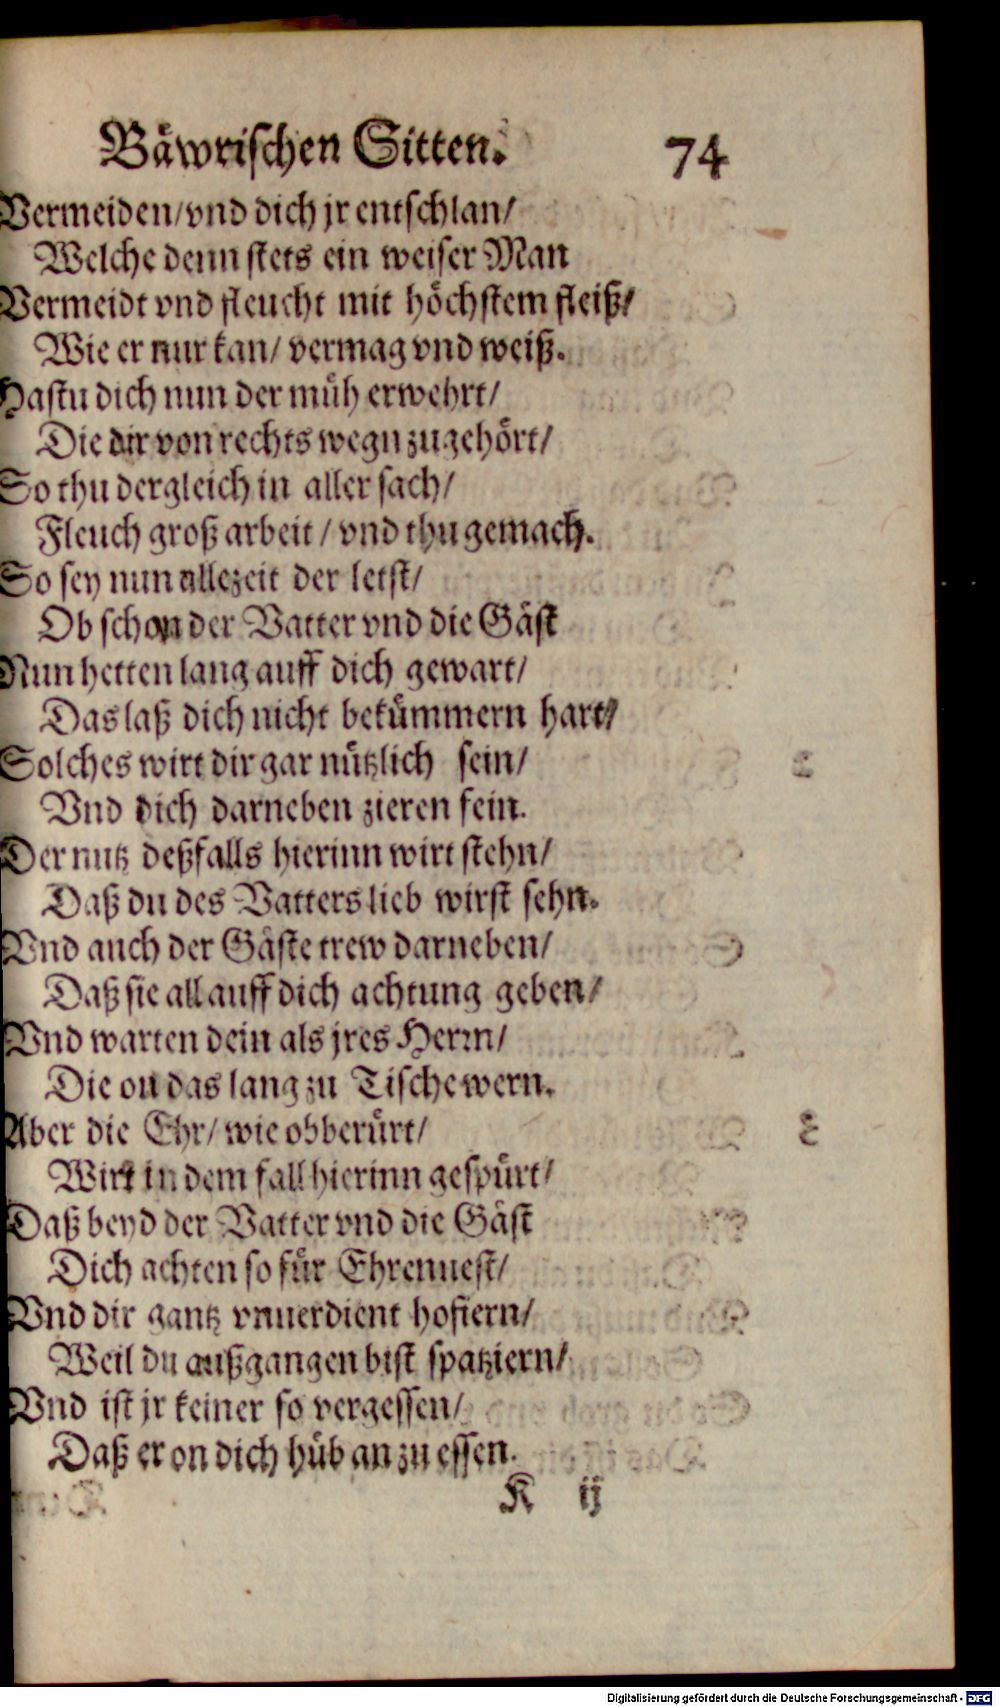 Bäwrischen Sitten. 74
Vermeiden/vnd dich jr entschlan/
Welche denn stets ein weiser Man
Vermeidt vnd fleucht mit höchstem fleiß/
Wie er nur kan/ vermag vnd weiß.
Hastu dich nun der müh erwehrt/
Die dir von rechts wegn zugehört/
So thu dergleich in aller sach/
Fleuch groß arbeit / vnd thu gemach.
So sey nun allezeit der letst/
Ob schon der Vatter vnd die Gäst
Nun hetten lang auff dich gewart/
Das laß dich nicht bekümmern hart/
Solches wirt dir gar nützlich sein/
Vnd dich darneben zieren fein.
Der nutz deßfalls hierinn wirt stehn/
Daß du des Vatters lieb wirst sehn.
Vnd auch der Gäste trew darneben/
Daß sie all auff dich achtung geben/
Vnd warten dein als jres Herrn/
Die on das lang zu Tische wern.
Aber die Ehr/ wie obberürt/
Wirt in dem fall hierinn gespürt/
Daß beyd der Vatter vnd die Gäst
Dich achten so für Ehrenuest/
Vnd dir gantz vnuerdient hofiern/
Weil du außgangen bist spatziern/
Vnd ist jr keiner so vergessen/
Daß er on dich hüb an zu essen.
K ij
Digitalisierung gefördert durch die Deutsche Forschungsgemeinschaft - DFG